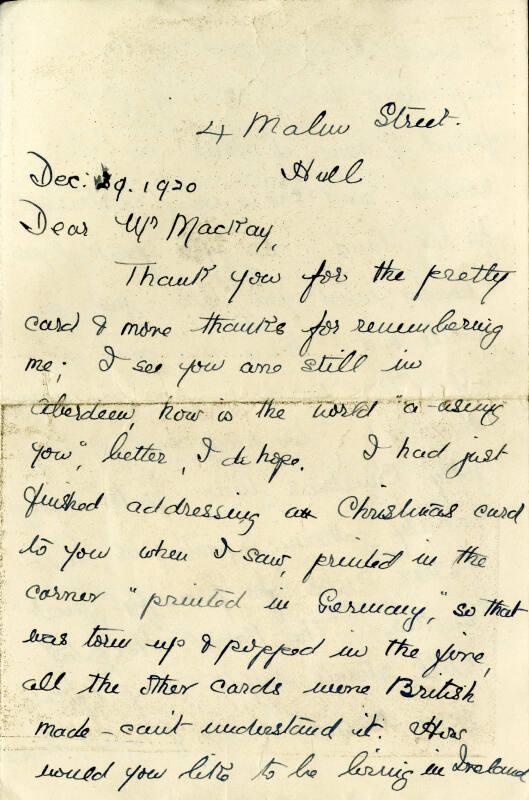 4 Malm Street.
Hull
Dec. 29. 1920
Dear Mr MacKay,
Thank you for the pretty
card & more thanks for remembering
me; I see you are still in
Aberdeen, how is the world "a-using
you", better, I do hope. I had just
finished addressing a Christmas card
to you when I saw, printed in the
corner "printed in Germany," so that
was torn up & popped in the fire,
all the other cards were British
made - can't understand it. How
would you like to be living in Ireland